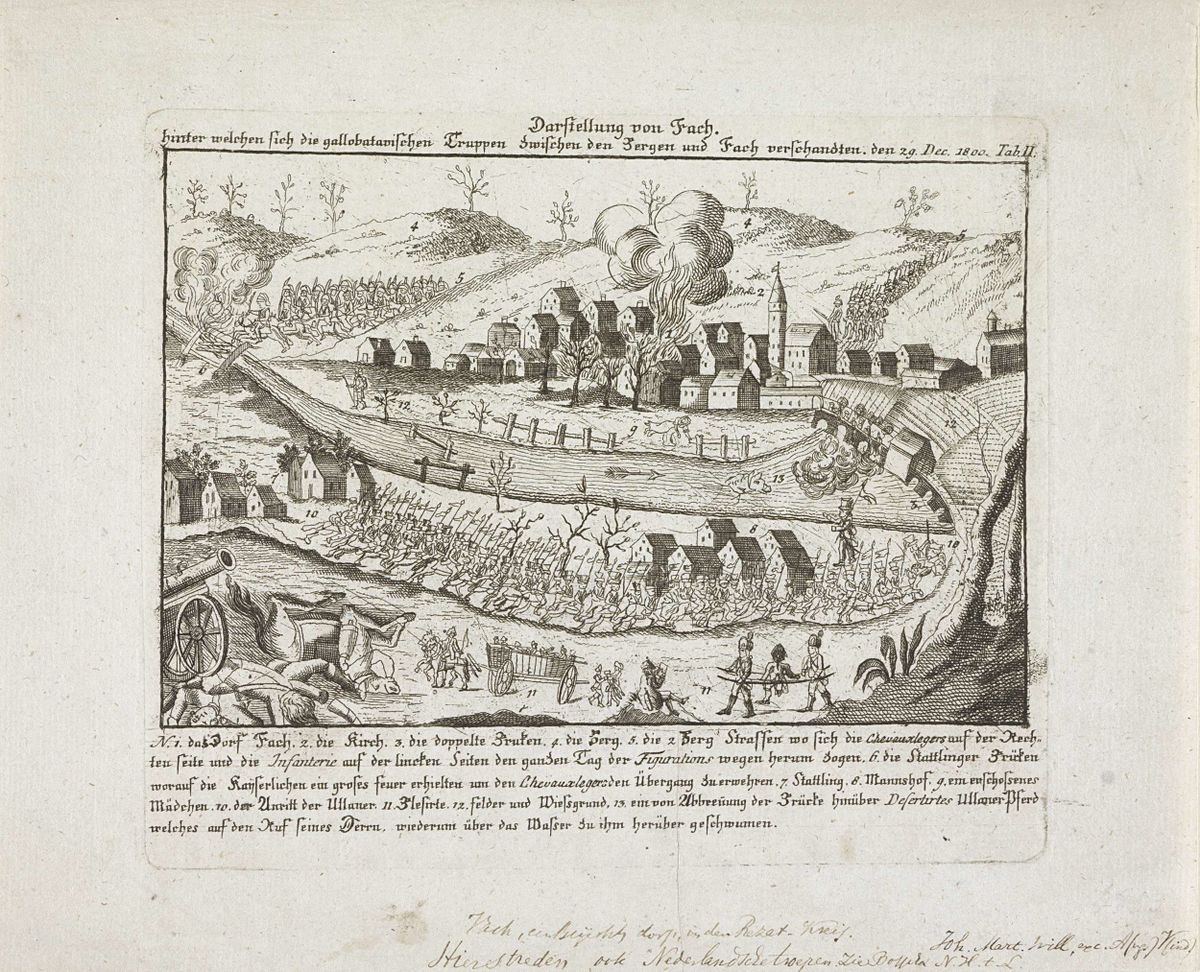 Darstellung von Fach.
hinter welchen sich die gallobatavischen Truppen zwischen den Bergen und Fach verschandten. den 29. Dec. 1800. Tab. II.
4
4
5
5
2
6
12
9
12
13
3
10
8
10
11
11
N. 1. das Dorf Fach. 2. die Kirch. 3. die doppelte Bruken. 4. die Berg. 5. die 2 Berg Strassen wo sich die Chevauxlegers auf der Rech-
ten seite und die Infanterie auf der lincken Seiten den ganzen Tag der Figurations wegen herum zogen. 6. die Stattlinger Brücken
worauf die Kayserlichen ein groses feuer erhielten um den Chevauxlegers den Übergang zu erwehren. 7. Stattling. 8. Mannshof. 9. ein erschossenes
Mädchen. 10. der Anritt der Ullaner. 11. Blesirte. 12. felder und Wiessgrund. 13. ein von Abbreüung der Brücke hinüber Desertirtes Ullaner Pferd
welches auf den Ruf seines Herrn, wiederum über das Wasser zu ihm herüber geschwumen.
Vach, ein dorf, in den Rezat-Kreis.
Joh. Mart. Will, exc. Aug. Vind.
Hier streden ook Nederlandsche troepen. Zie Bosscha N. H. t. L